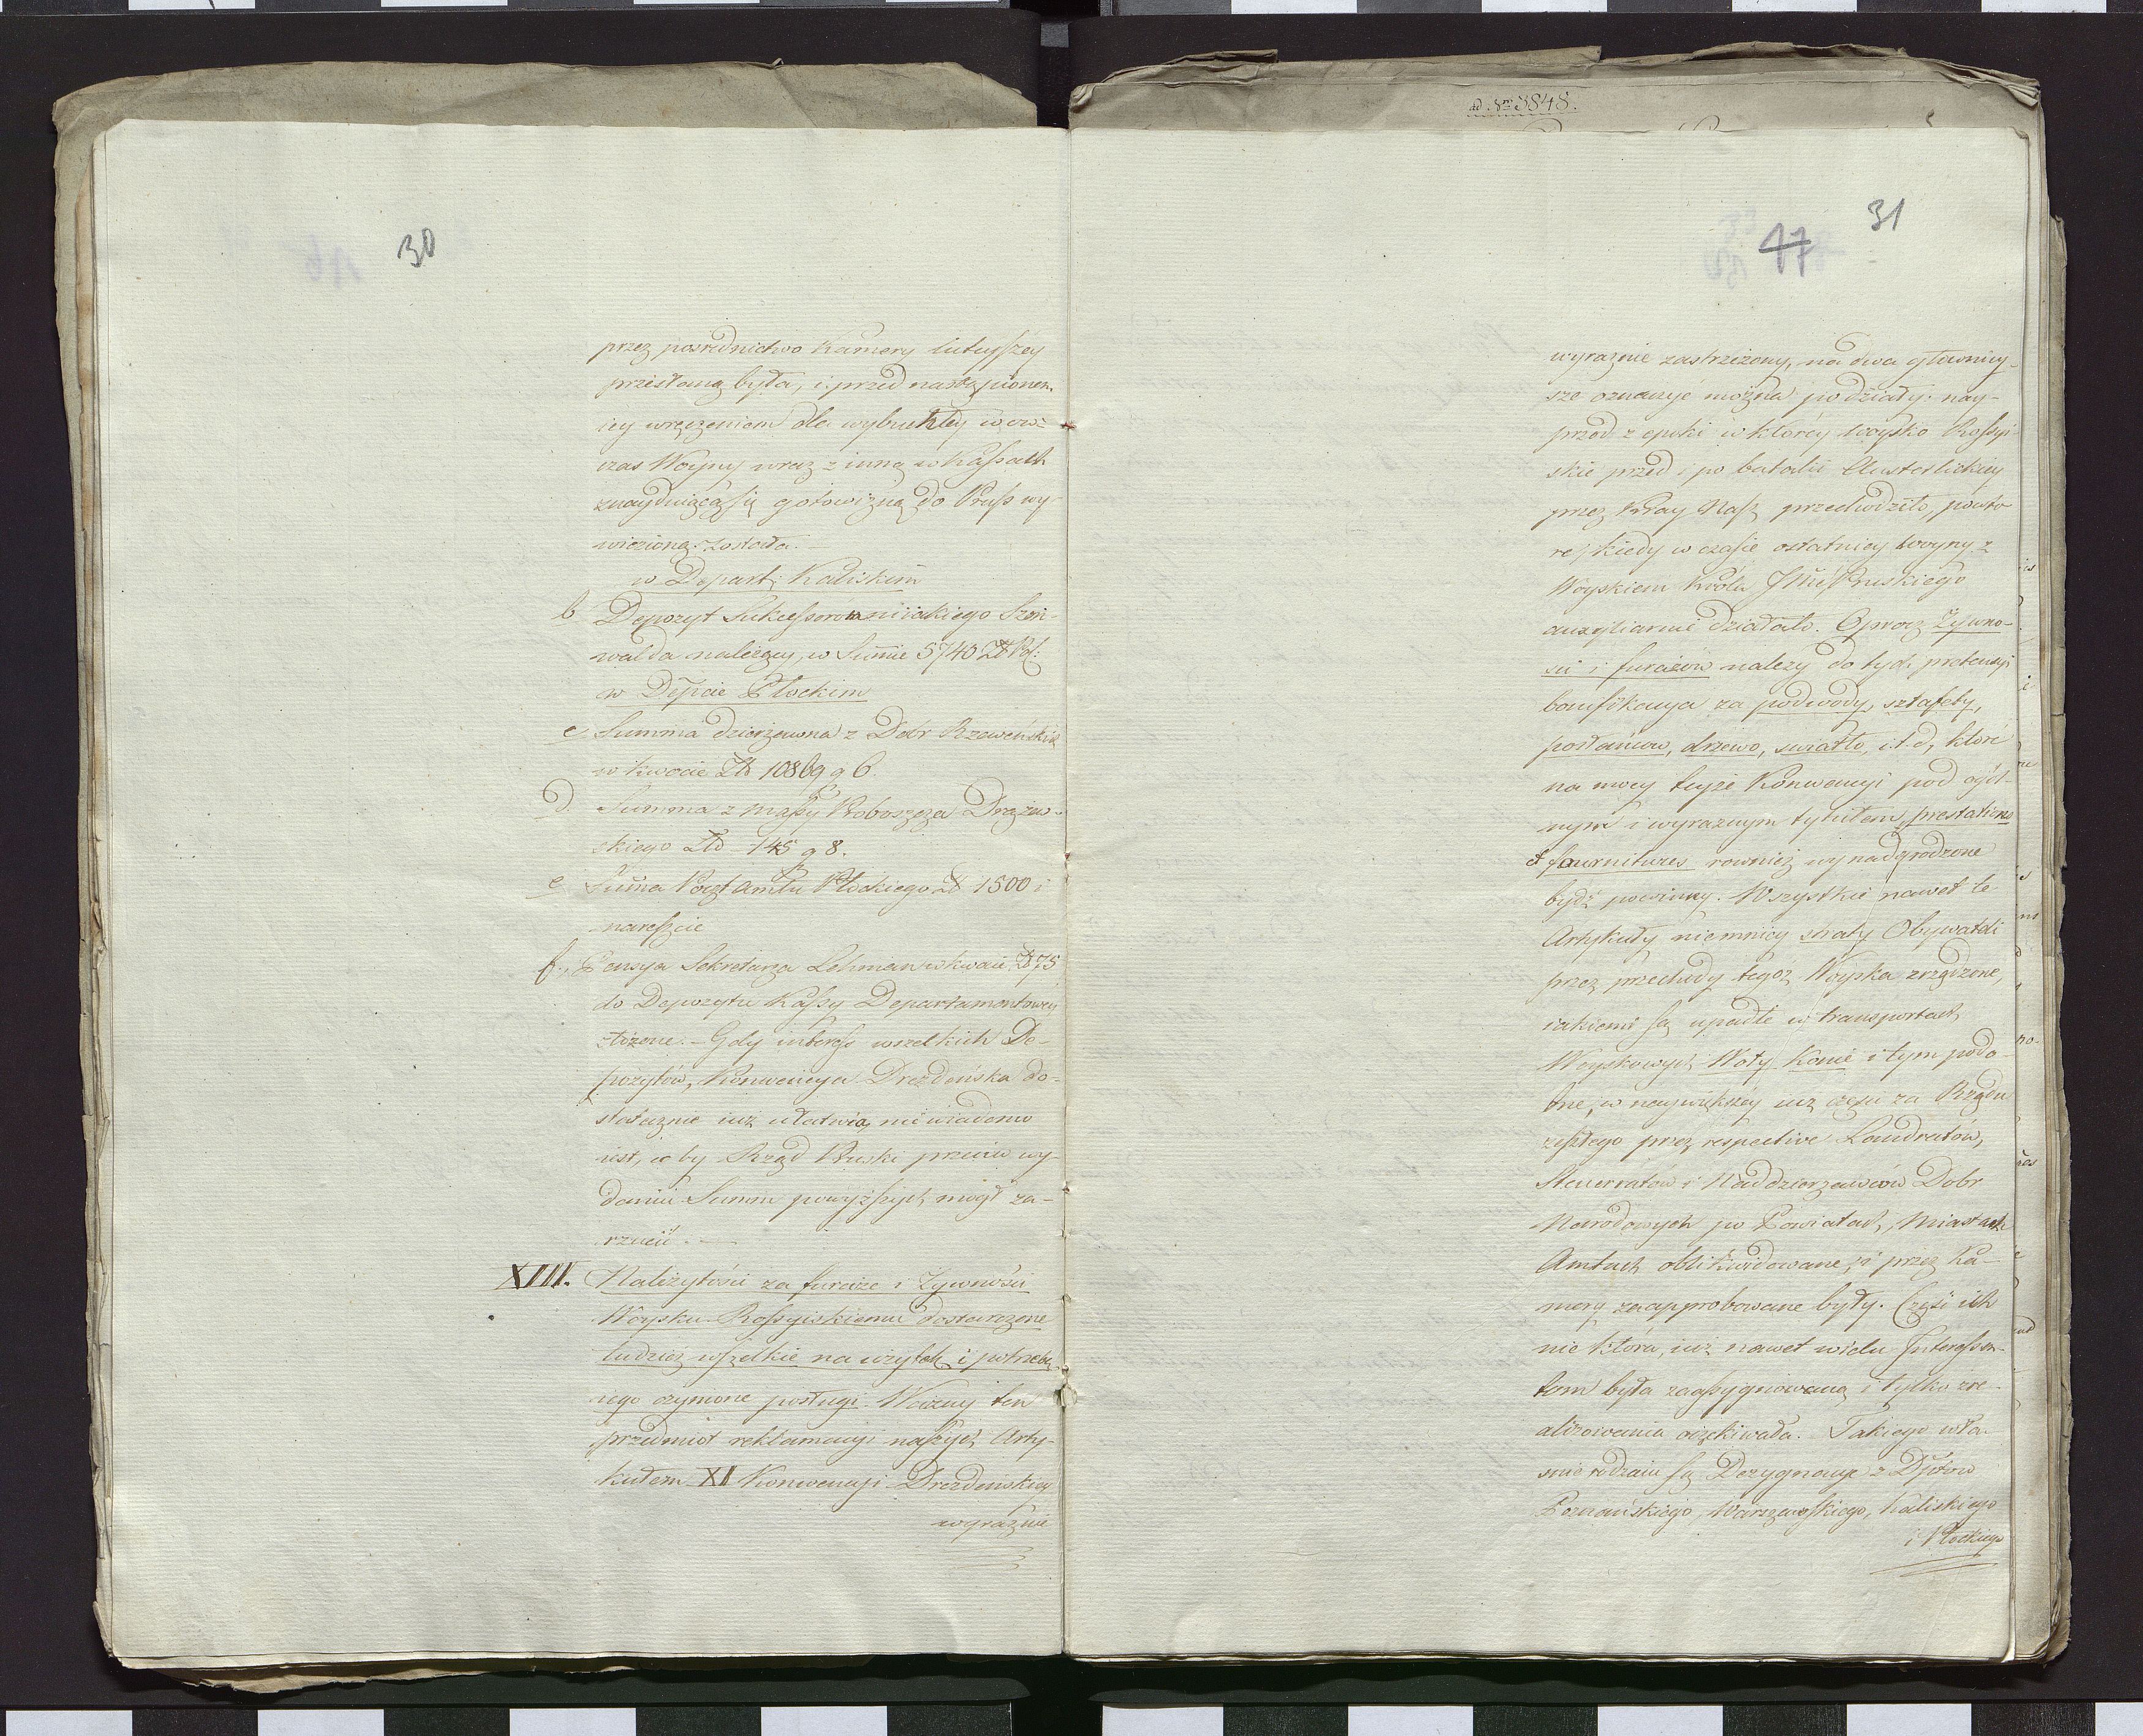 30
przez posrednictwo Kamery tuteyszey
przesłaną była, i przed nastąpionem
iey wręczeniem dla wybuchłey wów-
czas Woyny wraz z inną w Kassach
znayduiącąsię gotowizną do Pruss wy-
wiezioną została. —
w Depart: Kaliskim
b Depozyt Sukcessorow nieiakiego Szön-
walda należący, w Sumie 5740 Zł Pol:
w Depcie Płockim
c Summa dzierżawna z Dobr Rzeweńskich
w kwocie Zł 10869 g 6.
d. Summa z massy Proboszcza Drążew-
skiego Zł 145 g 8.
e Suma Pocztamtu Płockiego Zł 1500 i
nareszcie
f. Pensya Sekretarza Lehman w kwocie Zł 75
do Depozytu Kassy Departamentowey
złożone. — Gdy interess wszelkich De-
pozytów, Konwencya Drezdeńska do-
statecznie iuż ułatwia, nie wiadomo
iest, co by Rząd Pruski przeciw wy-
daniu Summ powyższych mógł za-
rzucić. —
XIII. Należytości za furaże i Żywności
Woysku Rossyiskiemu dostarczone
tudzież wszelkie na użytek i potrzebę
iego czynione posługi. Ważny ten
przedmiot reklamacyi naszych Arty-
kułem XI Konwencyi Drezdeńskiey
wyraznie
ad Nr 3848.
31
47
wyraznie zastrzeżony, na dwa głowniey-
sze oznaczyć można podziały: nay-
przód z epoki w którey Woysko Rossyi-
skie przed i po batalii Austerlickiey
przez Kray Nasz przechodziło, powtó-
re, kiedy w czasie ostatniey Woyny z
Woyskiem Króla JMci Pruskiego
auxyliarnie działało. Oprocz Żywno-
sci i furażów należy do tych pretensyi
bonifikacya za podwody, sztafety,
posłańcow, drzewo, swiatło, i.t.d, które
na mocy teyże Konwencyi pod ogól-
nym i wyraznym tytułem, prestations
et fournitures również wynadgrodzone
bydź powinny. Wszystkie nawet te
Artykuły niemniey straty Obywateli
przez przechody tegoż Woyska zrządzone,
iakiemi są upadłe w transportach
Woyskowych Woły Konie i tym podo-
bne, w naywiększey iuż częsci za Rządu
zeszłego przez respective Landratów,
Steuerratów i Naddzierzawców Dobr
Narodowych po Powiatach, Miastach
Amtach oblikwidowane, i przez Ka-
mery zaapprobowane były. Część ich
nie która, iuż nawet wielu Interessen-
tom była zaassygnowaną i tylko zre-
alizowania oczekiwała. Takiego wła-
snie rodzaiu są Dezygnacye z Dptow
Poznańskiego, Warszawskiego, Kaliskiego
i Płockiego